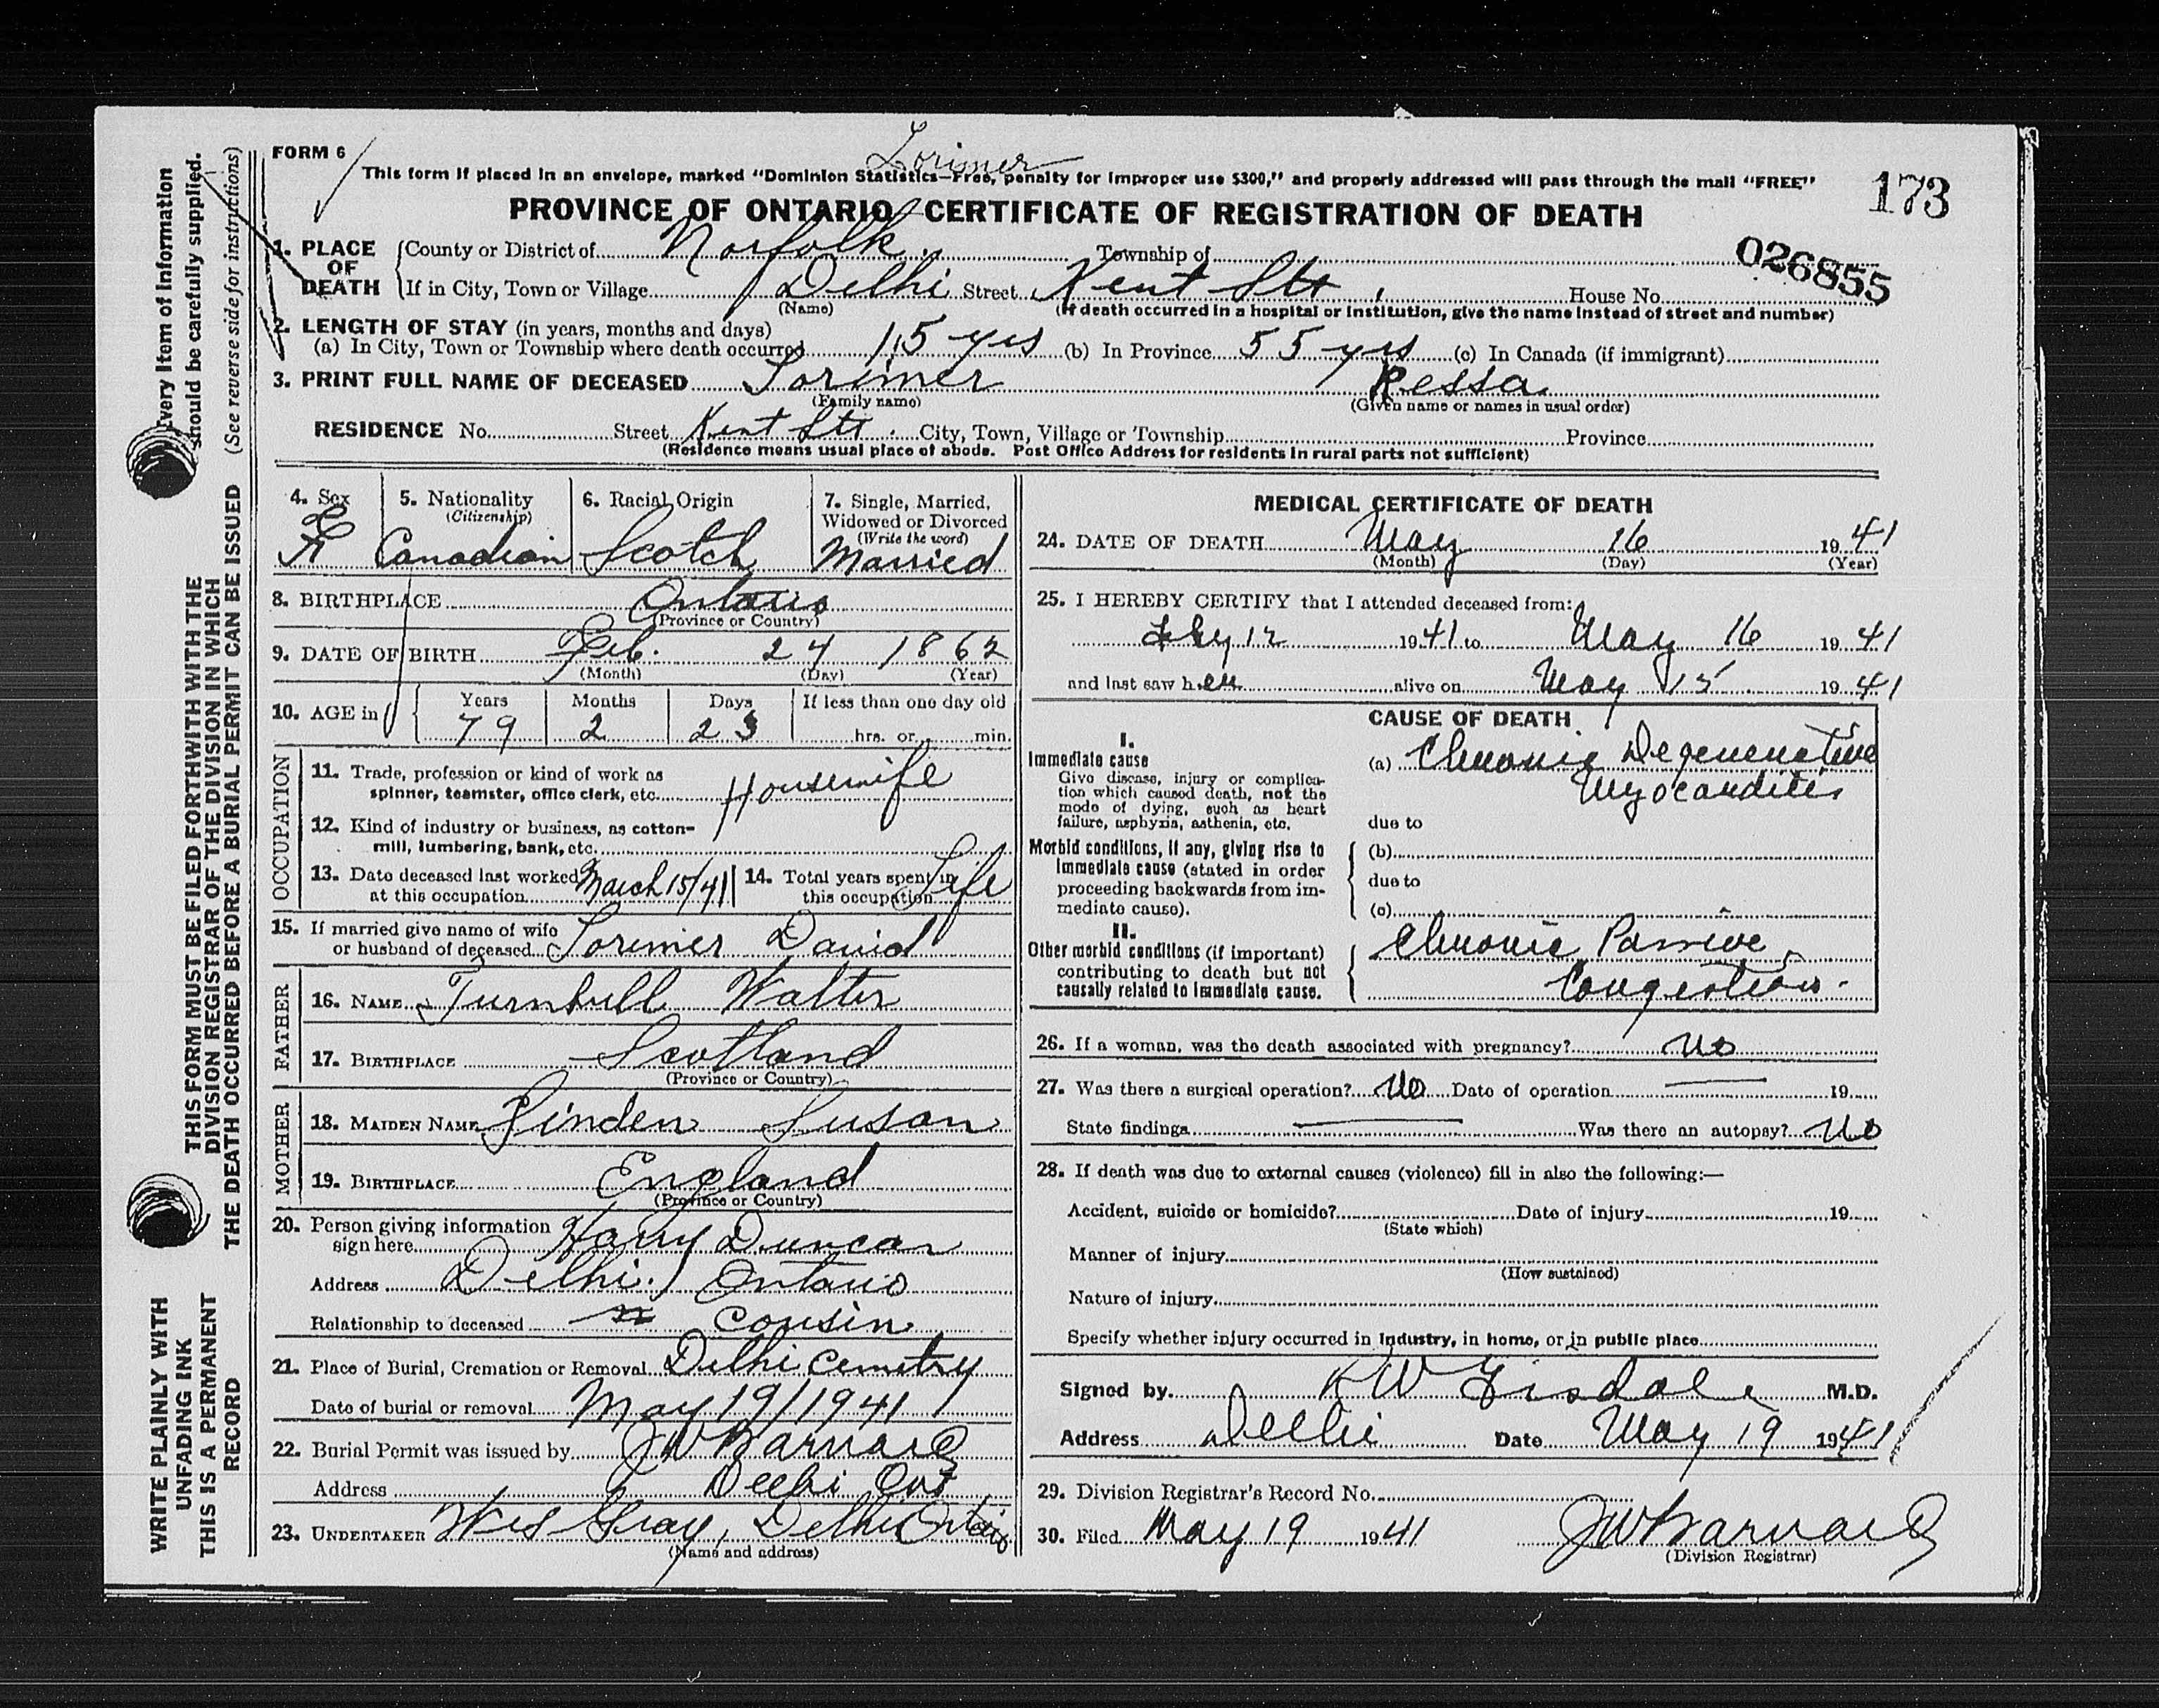 Lorimer
FORM 6
This form if placed in an envelope, marked "Dominion Statistics—Free, penalty for improper use $300," and properly addressed will pass through the mail "FREE"
173
PROVINCE OF ONTARIO—CERTIFICATE OF REGISTRATION OF DEATH
026855
1. PLACE OF DEATH County or District of Norfolk Township of
If in City, Town or Village Delhi Street Kent Str House No.
(Name) (If death occurred in a hospital or institution, give the name instead of street and number)
2. LENGTH OF STAY (in years, months and days)
(a) In City, Town or Township where death occurred 15 yrs (b) In Province 55 yrs (c) In Canada (if immigrant)
3. PRINT FULL NAME OF DECEASED Lorimer Ressa
(Family name) (Given name or names in usual order)
RESIDENCE No. Street Kent Str. City, Town, Village or Township Province
(Residence means usual place of abode. Post Office Address for residents in rural parts not sufficient)
4. Sex F
5. Nationality (Citizenship) Canadian
6. Racial Origin Scotch
7. Single, Married, Widowed or Divorced (Write the word) Married
8. BIRTHPLACE Ontario
(Province or Country)
9. DATE OF BIRTH Feb. 24 1862
(Month) (Day) (Year)
10. AGE in Years Months Days If less than one day old
79 2 23 hrs. or min.
OCCUPATION
11. Trade, profession or kind of work as
spinner, teamster, office clerk, etc. Housewife
12. Kind of industry or business, as cotton-
mill, lumbering, bank, etc.
13. Date deceased last worked at this occupation March 15/41
14. Total years spent in this occupation Life
15. If married give name of wife
or husband of deceased Lorimer David
FATHER
16. NAME Turnbull Walter
17. BIRTHPLACE Scotland
(Province or Country)
MOTHER
18. MAIDEN NAME Susan
19. BIRTHPLACE England
(Province or Country)
20. Person giving information
sign here Harry Duncan
Address Delhi. Ontario
Relationship to deceased cousin
21. Place of Burial, Cremation or Removal Delhi Cemetry
Date of burial or removal May 19/1941
22. Burial Permit was issued by J W Barnard
Address Delhi Ont
23. UNDERTAKER Wes Gray, Delhi Ontario
(Name and address)
MEDICAL CERTIFICATE OF DEATH
24. DATE OF DEATH May 16 1941
(Month) (Day) (Year)
25. I HEREBY CERTIFY that I attended deceased from:
12 1941 to May 16 1941
and last saw her alive on May 15 1941
CAUSE OF DEATH
I.
Immediate cause
Give disease, injury or complica-
tion which caused death, not the
mode of dying, such as heart
failure, asphyxia, asthenia, etc.
(a) Chronic Degenerative
Myocarditis
due to
Morbid conditions, if any, giving rise to
immediate cause (stated in order
proceeding backwards from im-
mediate cause).
(b)
due to
(c)
II.
Other morbid conditions (if important)
contributing to death but not
causally related to immediate cause.
Chronic Passive
Congestion.
26. If a woman, was the death associated with pregnancy? No
27. Was there a surgical operation? No Date of operation 19
State findings Was there an autopsy? No
28. If death was due to external causes (violence) fill in also the following:—
Accident, suicide or homicide? Date of injury 19
(State which)
Manner of injury
(How sustained)
Nature of injury
Specify whether injury occurred in industry, in home, or in public place
Signed by R W Tisdale M.D.
Address Delhi Date May 19 1941
29. Division Registrar's Record No.
30. Filed May 19 1941 J W Barnard
(Division Registrar)
Every Item of Information
should be carefully supplied.
(See reverse side for instructions)
THIS FORM MUST BE FILED FORTHWITH WITH THE
DIVISION REGISTRAR OF THE DIVISION IN WHICH
THE DEATH OCCURRED BEFORE A BURIAL PERMIT CAN BE ISSUED
WRITE PLAINLY WITH
UNFADING INK
THIS IS A PERMANENT
RECORD